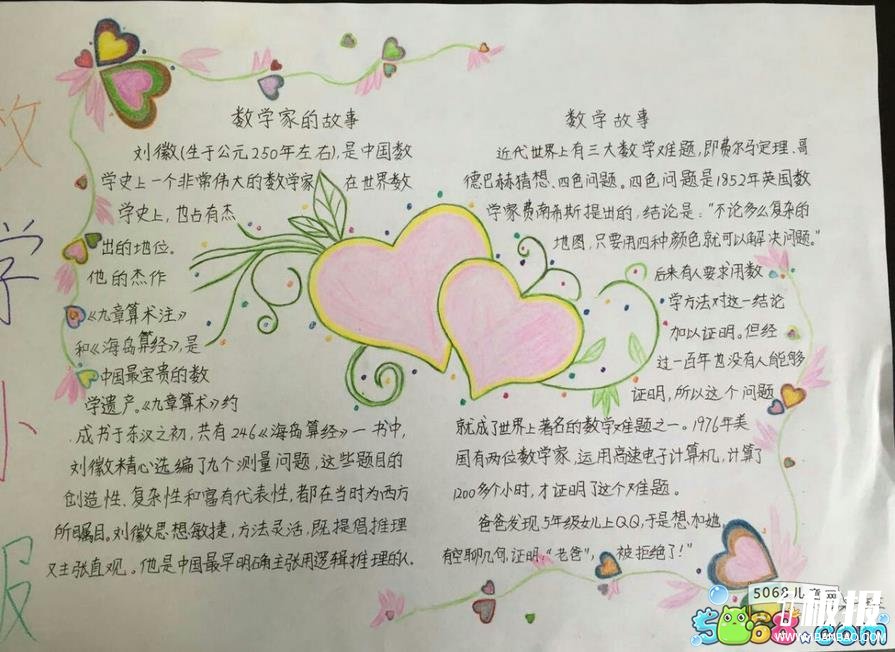 数
学
小
报
数学家的故事
刘徽(生于公元250年左右),是中国数
学史上一个非常伟大的数学家 在世界数
学史上,也占有杰
出的地位。
他的杰作
《九章算术注》
和《海岛算经》,是
中国最宝贵的数
学遗产。《九章算术》约
成书于东汉之初,共有246《海岛算经》一书中,
刘徽精心选编了九个测量问题,这些题目的
创造性、复杂性和富有代表性,都在当时为西方
所瞩目。刘徽思想敏捷,方法灵活,既提倡推理
又主张直观。他是中国最早明确主张用逻辑推理的人
数学故事
近代世界上有三大数学难题,即费尔马定理、哥
德巴赫猜想、四色问题。四色问题是1852年英国数
学家费南希斯提出的,结论是:"不论多么复杂的
地图,只要用四种颜色就可以解决问题。"
后来有人要求用数
学方法对这一结论
加以证明。但经
过一百年也没有人能够
证明,所以这个问题
就成了世界上著名的数学难题之一。1976年美
国有两位数学家,运用高速电子计算机,计算了
1200多个小时,才证明了这个难题。
爸爸发现5年级女儿上QQ,于是想加她,
有空聊几何,证明:"老爸", 被拒绝了!"
5068儿童网
5068.com
板报
WWW.BANBAO.COM